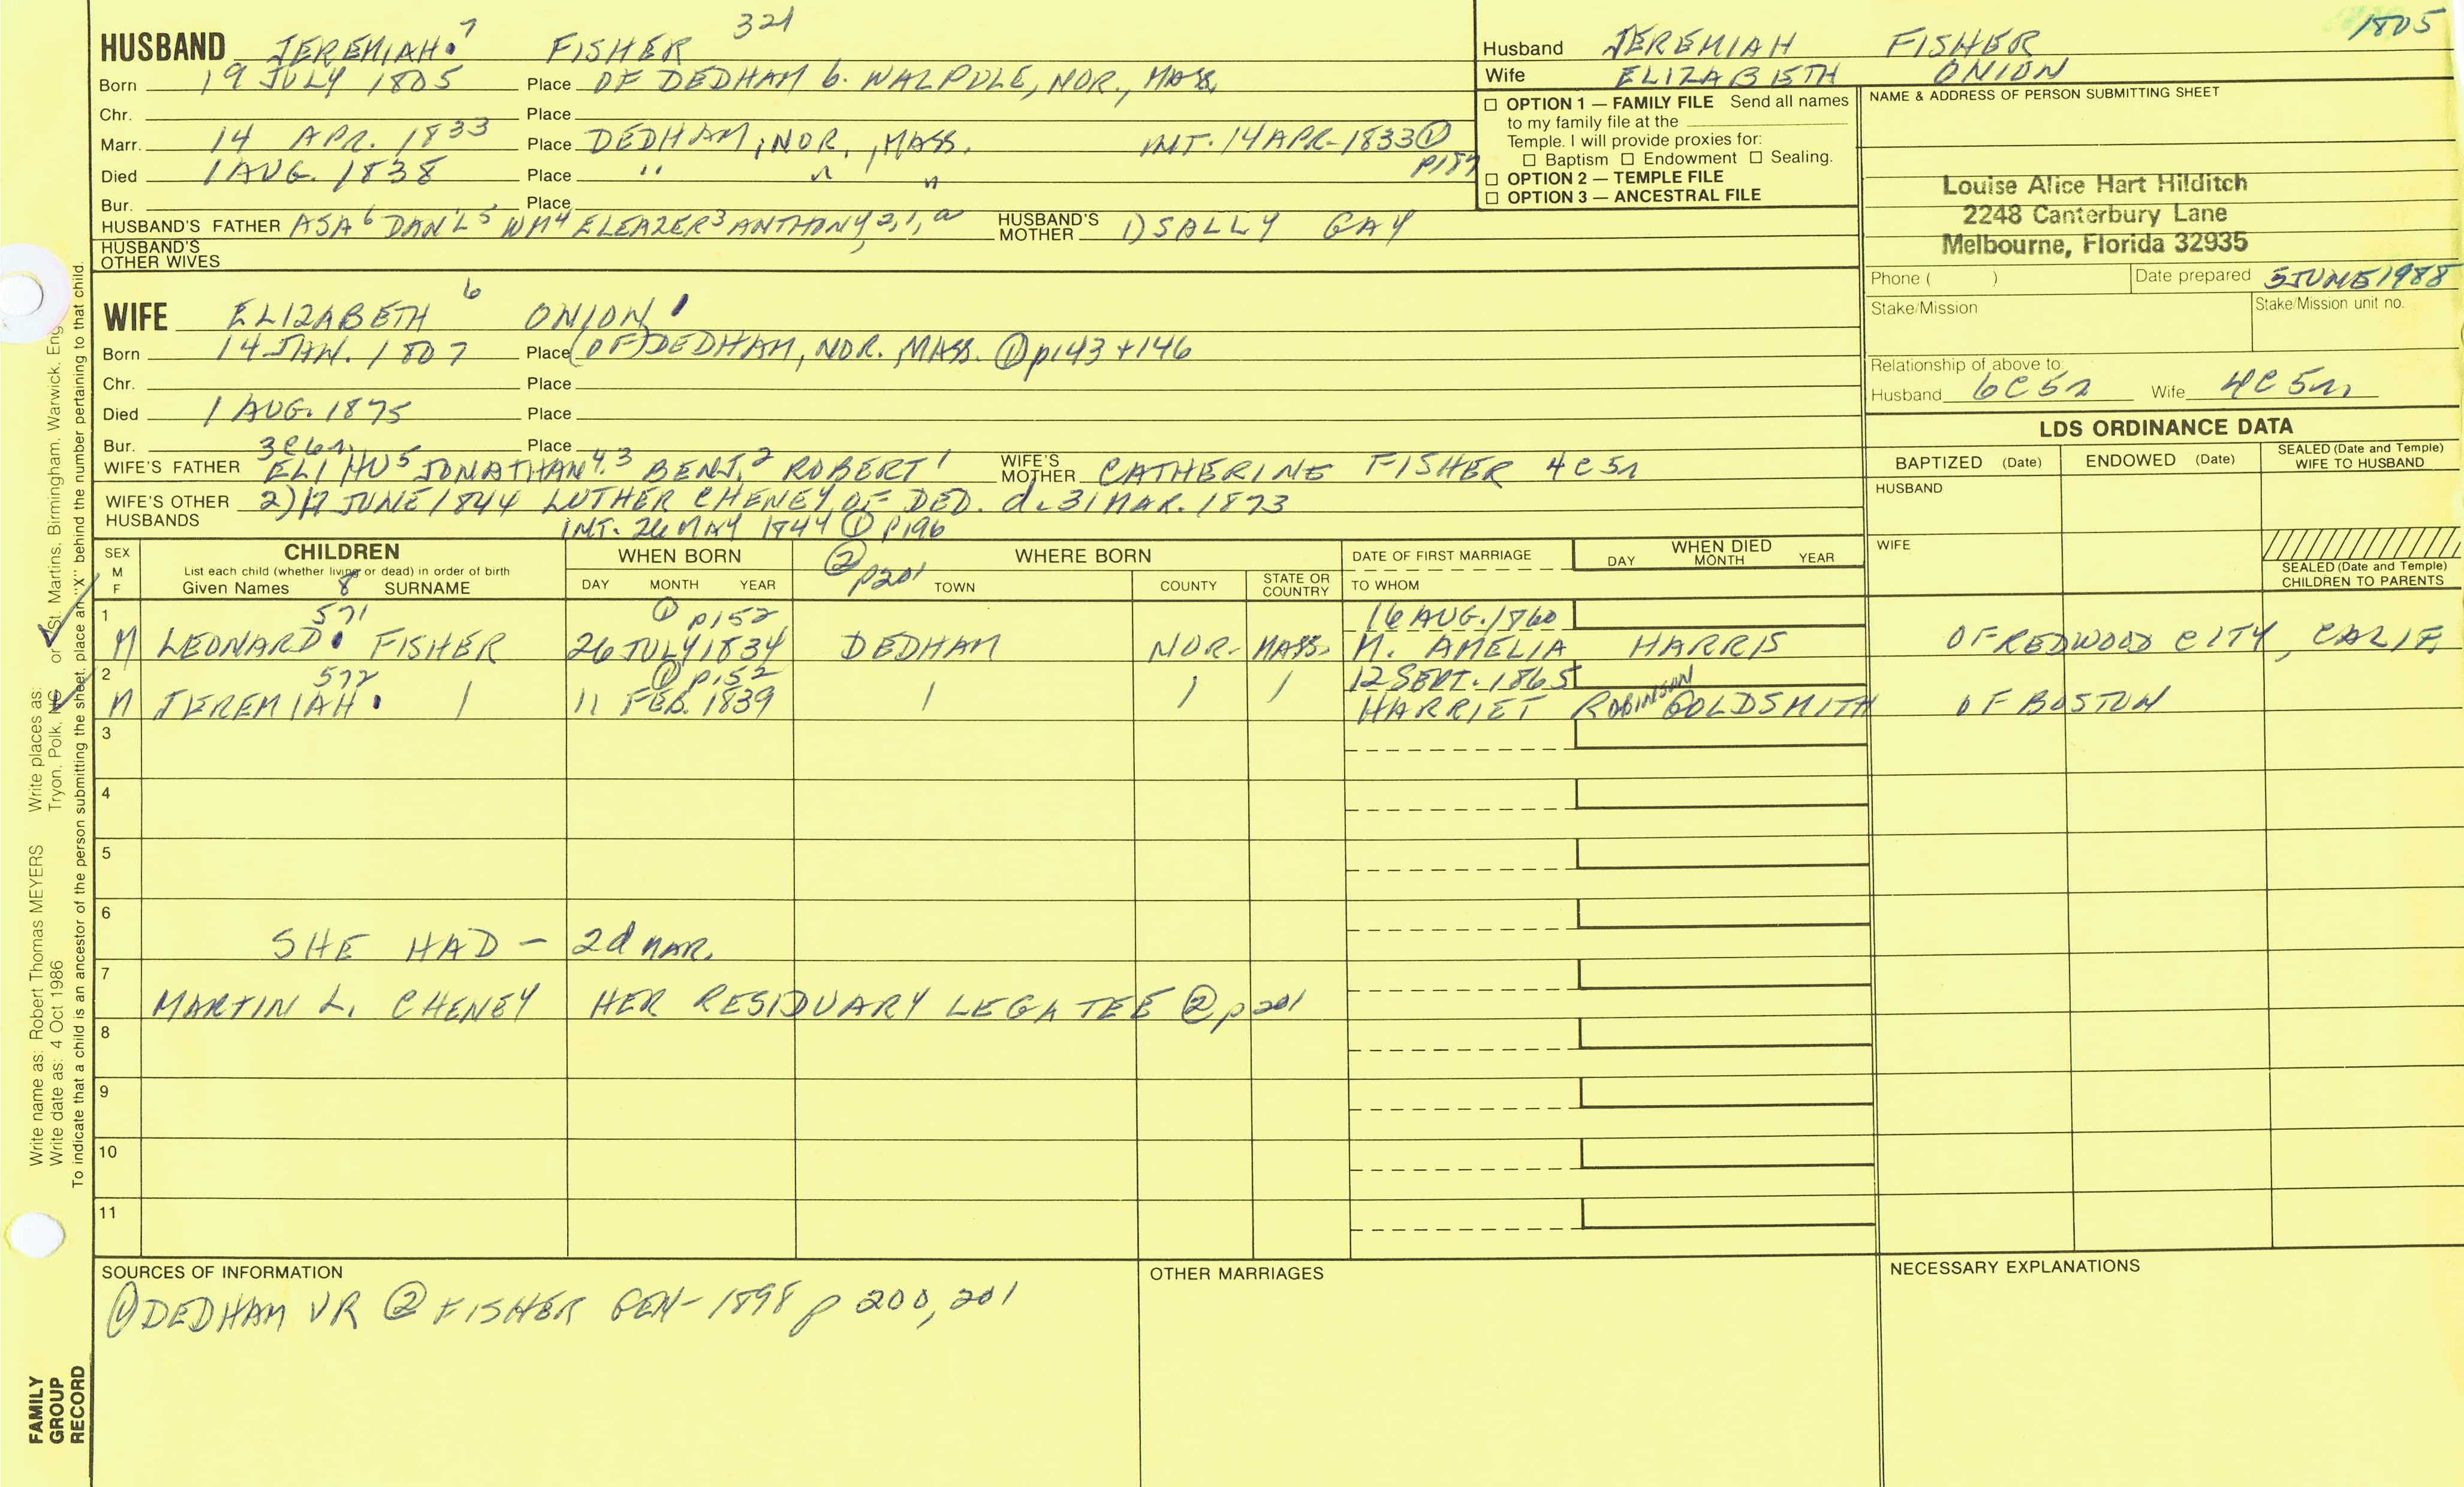 HUSBAND JEREMIAH.7 FISHER 321
Born 19 JULY 1805 Place OF DEDHAM b. WALPOLE, NOR., MASS.
Chr. Place
Marr. 14 APR. 1833 Place DEDHAM, NOR., MASS. INT. 14 APR. 1833 ① p189
Died 1 AUG. 1838 Place " " "
Bur. Place
HUSBAND'S FATHER ASA6 DAN'L5 WM4 ELEAZER3 ANTHONY2,1,a HUSBAND'S MOTHER 1) SALLY GAY
HUSBAND'S OTHER WIVES
WIFE ELIZABETH 6 ONION
Born 14 JAN. 1807 Place (OF) DEDHAM, NOR. MASS. ① p143 + 146
Chr. Place
Died 1 AUG. 1875 Place
Bur. Place
3C6n
WIFE'S FATHER ELIHU5 JONATHAN4,3 BENJ.2 ROBERT1 WIFE'S MOTHER CATHERINE FISHER 4C5n
WIFE'S OTHER HUSBANDS 2) 17 JUNE 1844 LUTHER CHENEY OF DED. d. 31 MAR. 1873
INT. 26 MAY 1844 ① p196
② p201
Husband JEREMIAH FISHER 1805
Wife ELIZABETH ONION
☐ OPTION 1 — FAMILY FILE Send all names
to my family file at the
Temple. I will provide proxies for:
☐ Baptism ☐ Endowment ☐ Sealing.
☐ OPTION 2 — TEMPLE FILE
☐ OPTION 3 — ANCESTRAL FILE
NAME & ADDRESS OF PERSON SUBMITTING SHEET
Louise Alice Hart Hilditch
2248 Canterbury Lane
Melbourne, Florida 32935
Phone ( ) Date prepared 5 JUNE 1988
Stake/Mission Stake/Mission unit no.
Relationship of above to:
Husband 6C5n Wife 4C5n
LDS ORDINANCE DATA
BAPTIZED (Date) ENDOWED (Date) SEALED (Date and Temple) WIFE TO HUSBAND
HUSBAND
WIFE
SEALED (Date and Temple) CHILDREN TO PARENTS
SEX M F
CHILDREN
List each child (whether living or dead) in order of birth
Given Names 8 SURNAME
WHEN BORN
DAY MONTH YEAR
WHERE BORN
TOWN COUNTY STATE OR COUNTRY
DATE OF FIRST MARRIAGE
TO WHOM
WHEN DIED
DAY MONTH YEAR
1 571 ① p152 16 AUG. 1860
M LEONARD. FISHER 26 JULY 1834 DEDHAM NOR. MASS. M. AMELIA HARRIS OF REDWOOD CITY, CALIF.
2 572 ① p152 12 SEPT. 1865
M JEREMIAH. | 11 FEB. 1839 | | | HARRIET ROBINSON GOLDSMITH OF BOSTON
3
4
5
6
SHE HAD - 2d MAR.
7
MARTIN L. CHENEY HER RESIDUARY LEGATEE ② p201
8
9
10
11
SOURCES OF INFORMATION
① DEDHAM VR ② FISHER GEN- 1898 p 200, 201
OTHER MARRIAGES
NECESSARY EXPLANATIONS
Write name as: Robert Thomas MEYERS Write places as: or St. Martins, Birmingham, Warwick, Eng
Write date as: 4 Oct 1986 Tryon, Polk, NC
To indicate that a child is an ancestor of the person submitting the sheet, place an "X" behind the number pertaining to that child.
FAMILY
GROUP
RECORD